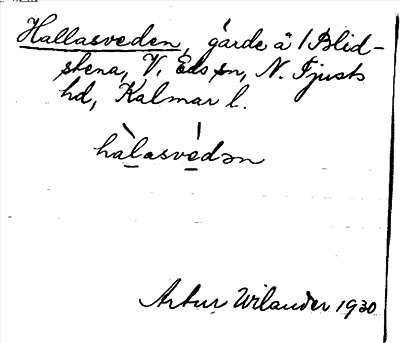 Hallasveden, gärde å 1 Blid-
stena, V. Eds sn, N. Tjusts
hd, Kalmar l.
halasvedən
Artur Wilander 1930